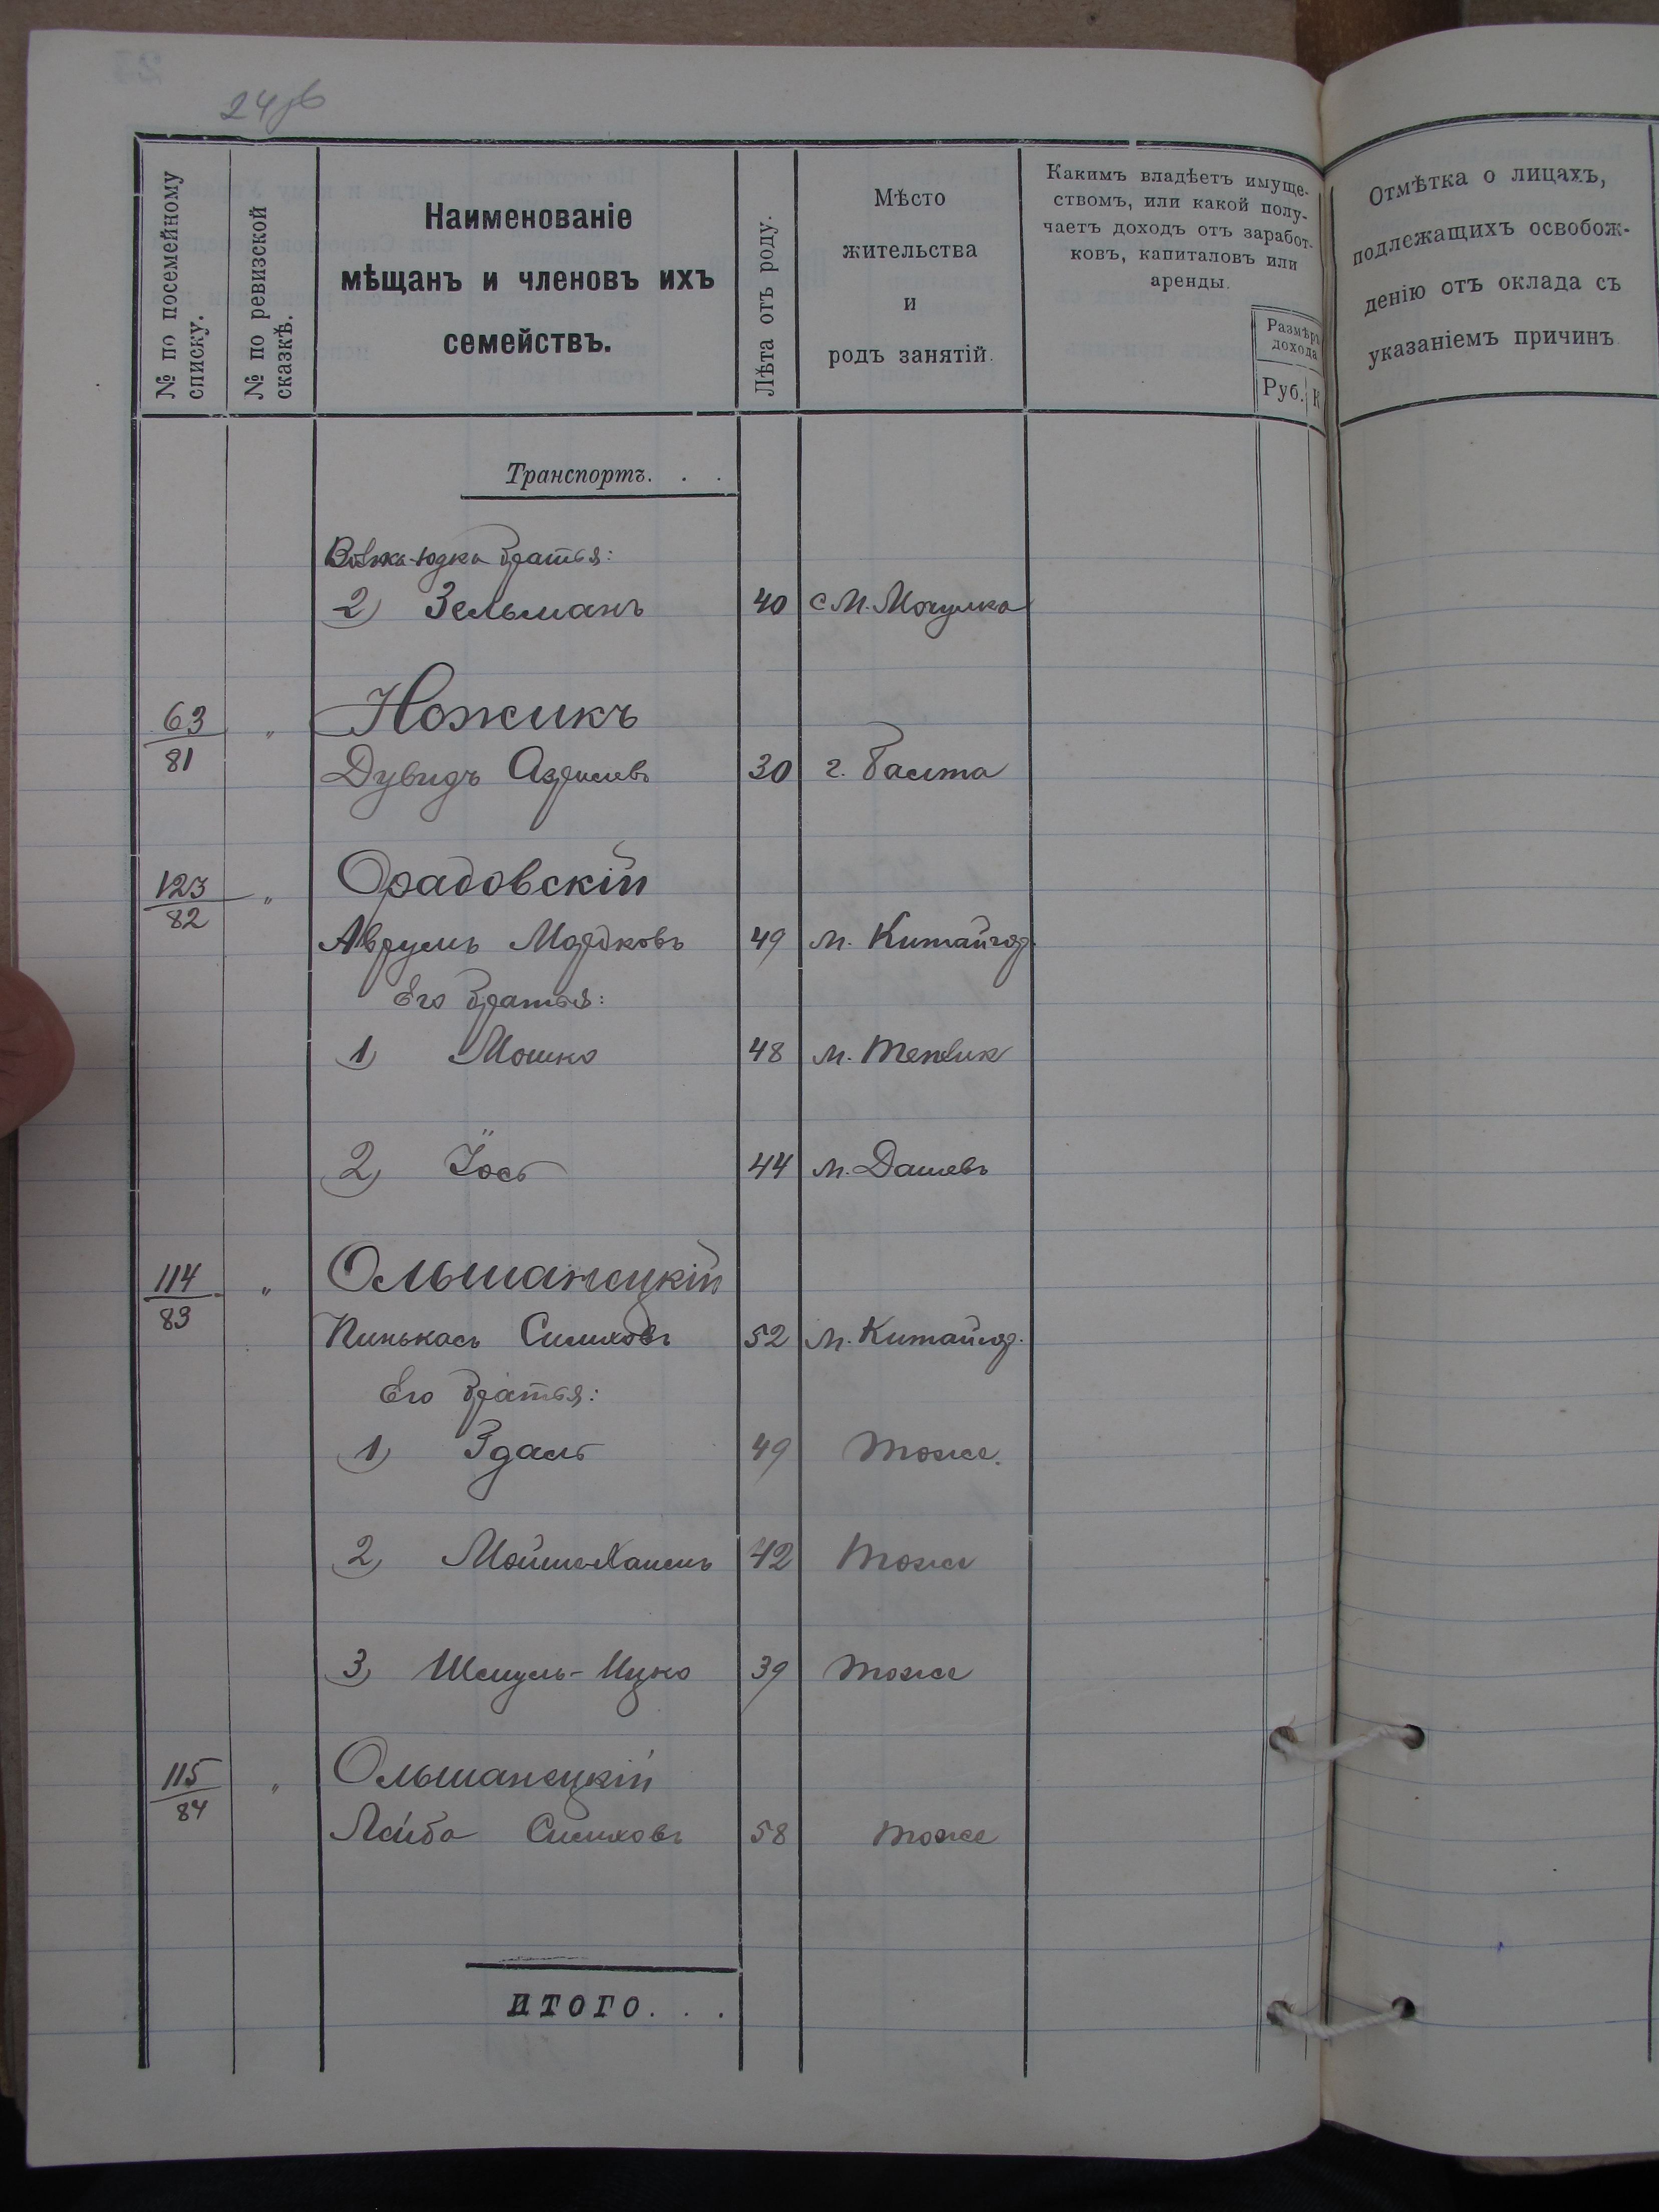 24об
№ по посемейному
списку.
№ по ревизской
сказкѣ.
Наименованіе
мѣщанъ и членовъ ихъ
семействъ.
Лѣта отъ роду.
Мѣсто
жительства
и
родъ занятій.
Какимъ владѣетъ имуще-
ствомъ, или какой полу-
чаетъ доходъ отъ заработ-
ковъ, капиталовъ или
аренды.
Размѣръ
дохода
Руб. К
Отмѣтка о лицахъ,
подлежащихъ освобож-
денію отъ оклада съ
указаніемъ причинъ
Транспортъ. . .
Юдка братья:
2) Зельманъ 40 с М. Мочулка
63 " Ножикъ
81
Дувидъ Азрилевъ 30 г. Балта
123 " Орадовскій
82
Аврумъ Мордковъ 49 м. Китайгор.
Его братья:
1) Мошко 48 м. Теплик
2) Іось 44 м. Дашевъ
114 " Ольшанецкій
83
Пинькасъ Симховъ 52 м. Китайгор.
Его братья:
1) 49 тоже.
2) Мойше-Хаимъ 42 тоже
3) Шмуль-Ицко 39 тоже
115 " Ольшанецкій
84
Лейба Симховъ 58 тоже
ИТОГО. . .